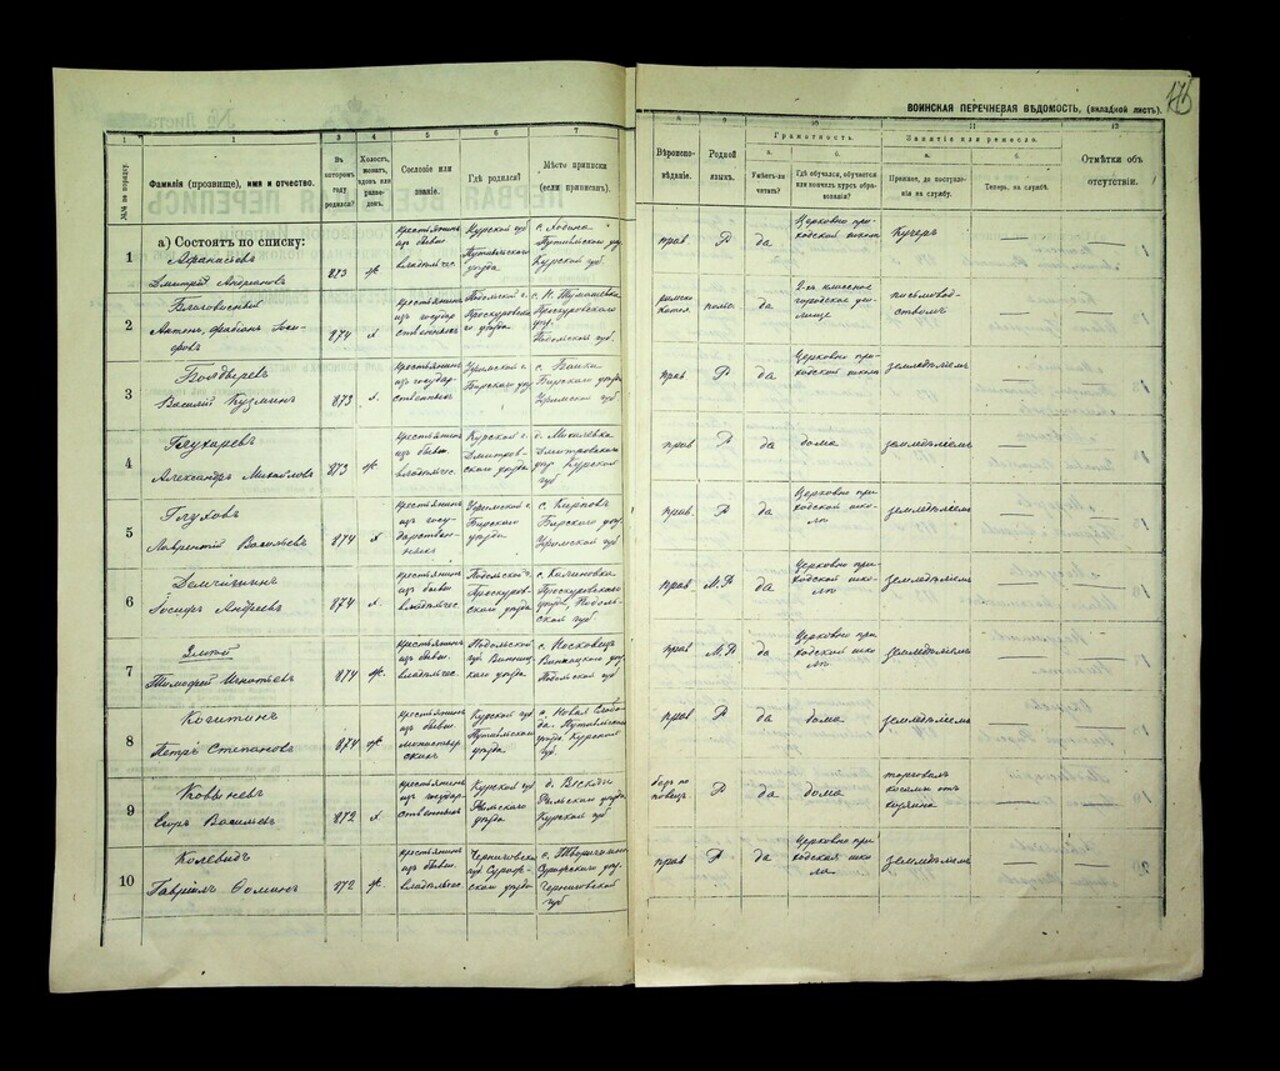 175
ВОИНСКАЯ ПЕРЕЧНЕВАЯ ВѢДОМОСТЬ, (вкладной листъ).
1 1 3 4 5 6 7 8 9 10 11 12
№№ по порядку.
Фамилія (прозвище), имя и отчество.
Въ которомъ году родился?
Холостъ, женатъ, вдовъ или разведенъ.
Сословіе или званіе.
Гдѣ родился?
Мѣсто приписки (если приписанъ).
Вѣроисповѣданіе.
Родной языкъ.
Грамотность.
а. Умѣетъ-ли читать?
б. Гдѣ обучался, обучается или кончилъ курсъ образованія?
Занятіе или ремесло.
а. Прежнее, до поступленія на службу.
б. Теперь, на службѣ.
Отмѣтки объ отсутствіи.
а) Состоятъ по списку:
1
Афанасьевъ
Дмитрій Андріановъ
873
ж
крестьянинъ
изъ бывш.
владѣльчес.
Курской губ
Путивльскаго
уѣзда
Путивльскаго уѣз
Курской губ.
прав.
Р
да
Церковно приходской школѣ
Кучеръ
2
Благовисный
Антонъ, Фабіанъ Іосифовъ
874
х
крестьянинъ
изъ государственныхъ
Подольской г.
Проскуровскаго уѣзда
Проскуровскаго
уѣз.
Подольской губ.
римско
катол.
польс.
да
2-хъ классное
городское училище
письмоводствомъ
3
Болдыревъ
Василій Кузминъ
873
х.
крестьянинъ
изъ государственныхъ
Уфимской г.
Бирскаго уѣз
Бирскаго уѣзда
Уфимской губ
прав.
Р
да
Церковно приходской школѣ
земледѣліемъ
4
Глухаревъ
Александръ Михайловъ
873
ж.
крестьянинъ
изъ бывш.
владѣльчес.
Курской г.
Дмитровскаго уѣзда
д. Михалевка
Дмитровскаго
уѣз Курской
губ
прав
Р
да
дома
земледѣліемъ
5
Глуховъ
Лаврентій Васильевъ
874
х
крестьянинъ
изъ государственныхъ
Уфимской г.
Бирскаго
уѣзда
Бирскаго уѣз.
Уфимской губ
прав.
Р
да
Церковно приходской школѣ
земледѣліемъ
6
Іосифъ Андреевъ
874
х.
крестьянинъ
изъ бывш
владѣльчес.
Подольской г
Проскуровскаго уѣзда
с. Калиновка
Проскуровскаго
уѣзда, Подольской губ
прав
М.Р
да
Церковно приходской школѣ
земледѣліемъ
7
Злотой
Тимофей Игнатьевъ
874
ж.
крестьянинъ
изъ бывш.
владѣльчес.
Подольской
губ. Винницкаго уѣзда
Винницкаго уѣз
Подольской губ
прав
М.Р
да
Церковно приходской школѣ
земледѣліемъ
8
Кочитинъ
Петръ Степановъ
874
ж
крестьянинъ
изъ бывш.
монастырскихъ
Курской губ
Путивльскаго
уѣзда
с. Новая Слобода. Путивльскаго
уѣзда Курской
губ.
прав
Р
да
дома
земледѣліемъ
9
Ковыневъ
Егоръ Васильевъ
872
х
крестьянинъ
изъ государственныхъ
Курской губ
Рыльскаго
уѣзда
Рыльскаго уѣзда
Курской губ
Р
да
дома
10
Колевидъ
Гавріилъ Ѳоминъ
872
ж.
крестьянинъ
изъ бывш.
владѣльчес.
Черниговской
губ Суражскаго уѣзда
Суражскаго уѣз.
Черниговской
губ
прав
Р
да
Церковно приходская школа
земледѣліемъ